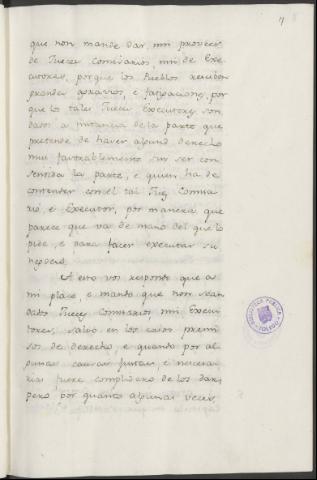 7
que non mande dar, nin proveer
de Jueces Comisarios, nin de Exe-
cutores, porque los Pueblos reciben
grandes agravios, e fatigaciones, por
que los tales Jueces Executores son
dados a instancia de la parte que
pretende de haver algund derecho
mui favorablemente sin ser con
sentida la parte, e quien ha de
contender con el tal Juez Comisa
rio, e Executor, por manera que
parece que va de mano del que lo
pide, e para facer executar su
negocio.
A esto vos respondo que a
mi place, e mando que non sean
dados Jueces Comisarios, ni Execu
tores, salvo en los casos premi
sos de derecho, e quando por al
gunas causas justas, e necesa
rias fuere complidero de los dar,
pero por quanto algunas veces,
BIBLIOTECA PUBLICA
TOLEDO